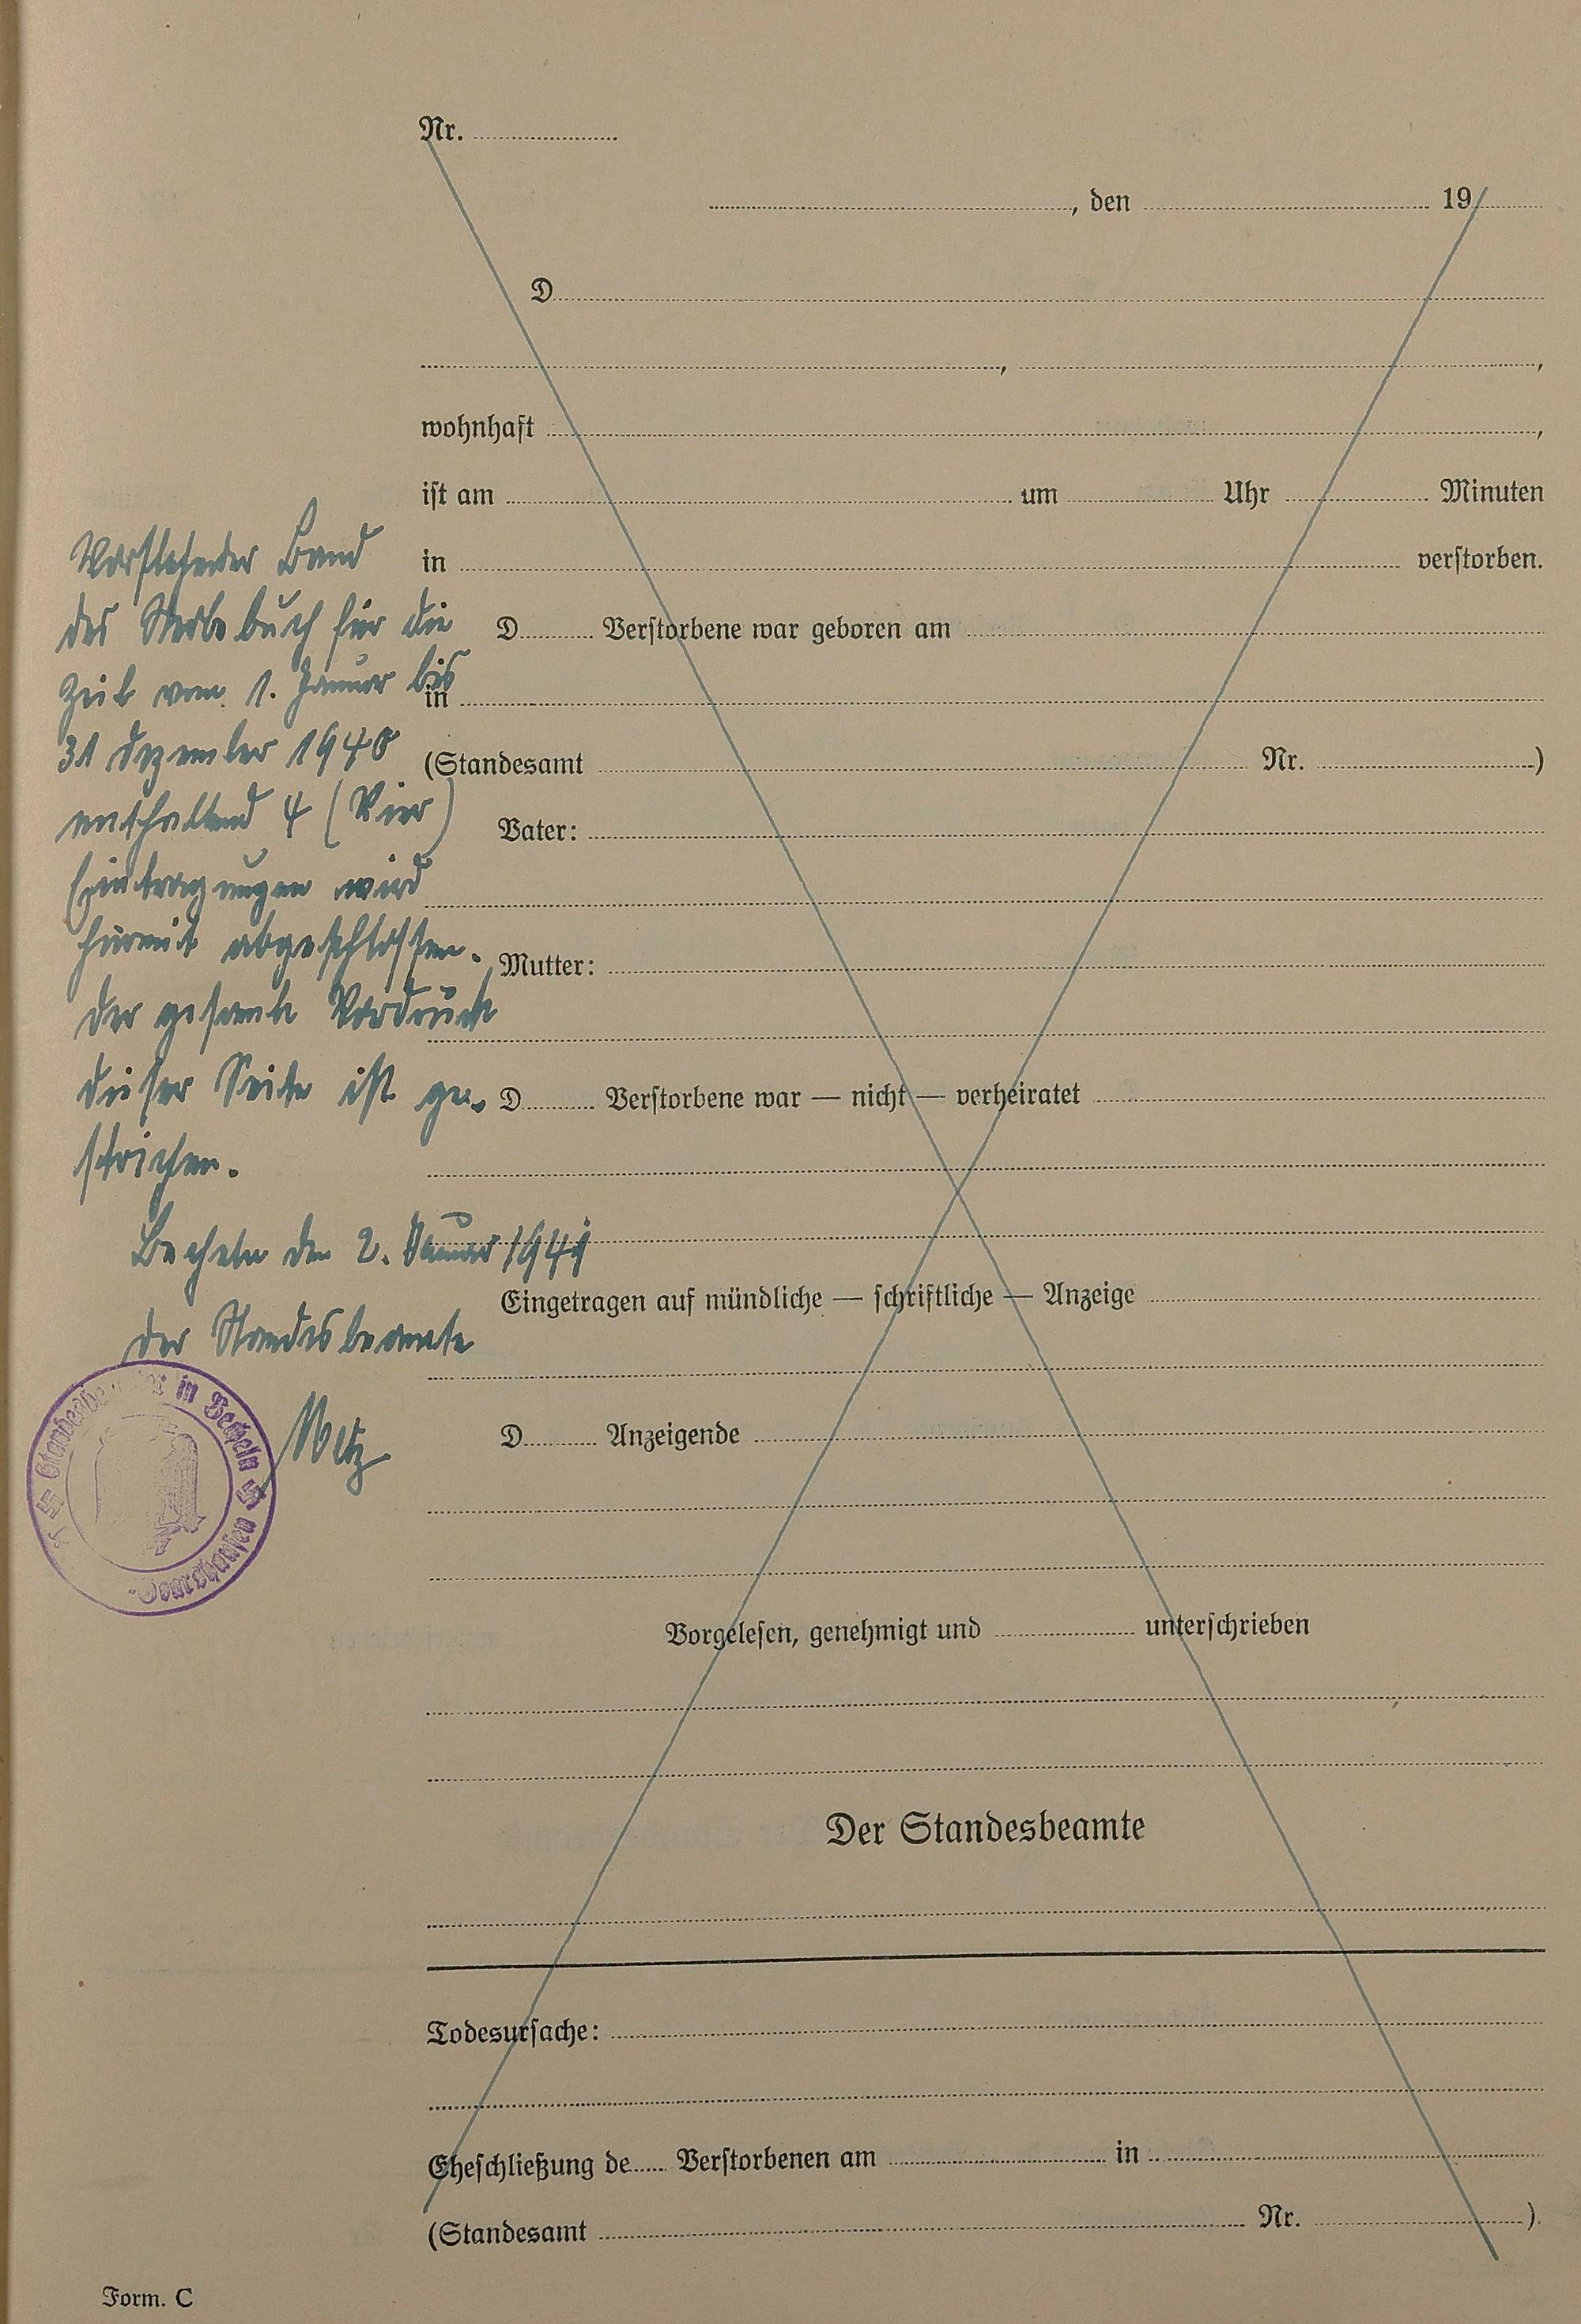 Nr.
, den 19
D
, ,
wohnhaft ,
ist am um Uhr Minuten
in verstorben.
D Verstorbene war geboren am
in
(Standesamt Nr. )
Vater:
Mutter:
D Verstorbene war — nicht — verheiratet
Eingetragen auf mündliche — schriftliche — Anzeige
D Anzeigende
Vorgelesen, genehmigt und unterschrieben
Der Standesbeamte
Todesursache:
Eheschließung de Verstorbenen am in
(Standesamt Nr. ).
Form. C
Vorstehender Band
des Sterbebuch für die
Zeit vom 1. Januar bis
31 Dezember 1940
enthaltend 4 (Vier)
Eintragungen wird
hiermit abgeschlossen.
Der gesamte Vordruck
dieser Seite ist ge-
strichen.
Becheln den 2. Januar 1941
Der Standesbeamte
Metz
in Becheln